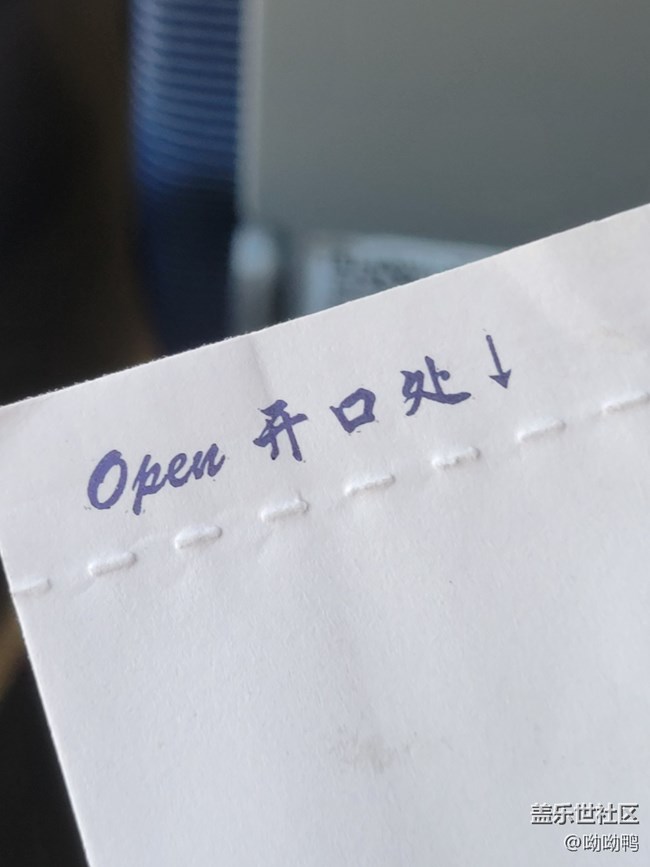 Open 开口处↓
盖乐世社区
@呦呦鸭